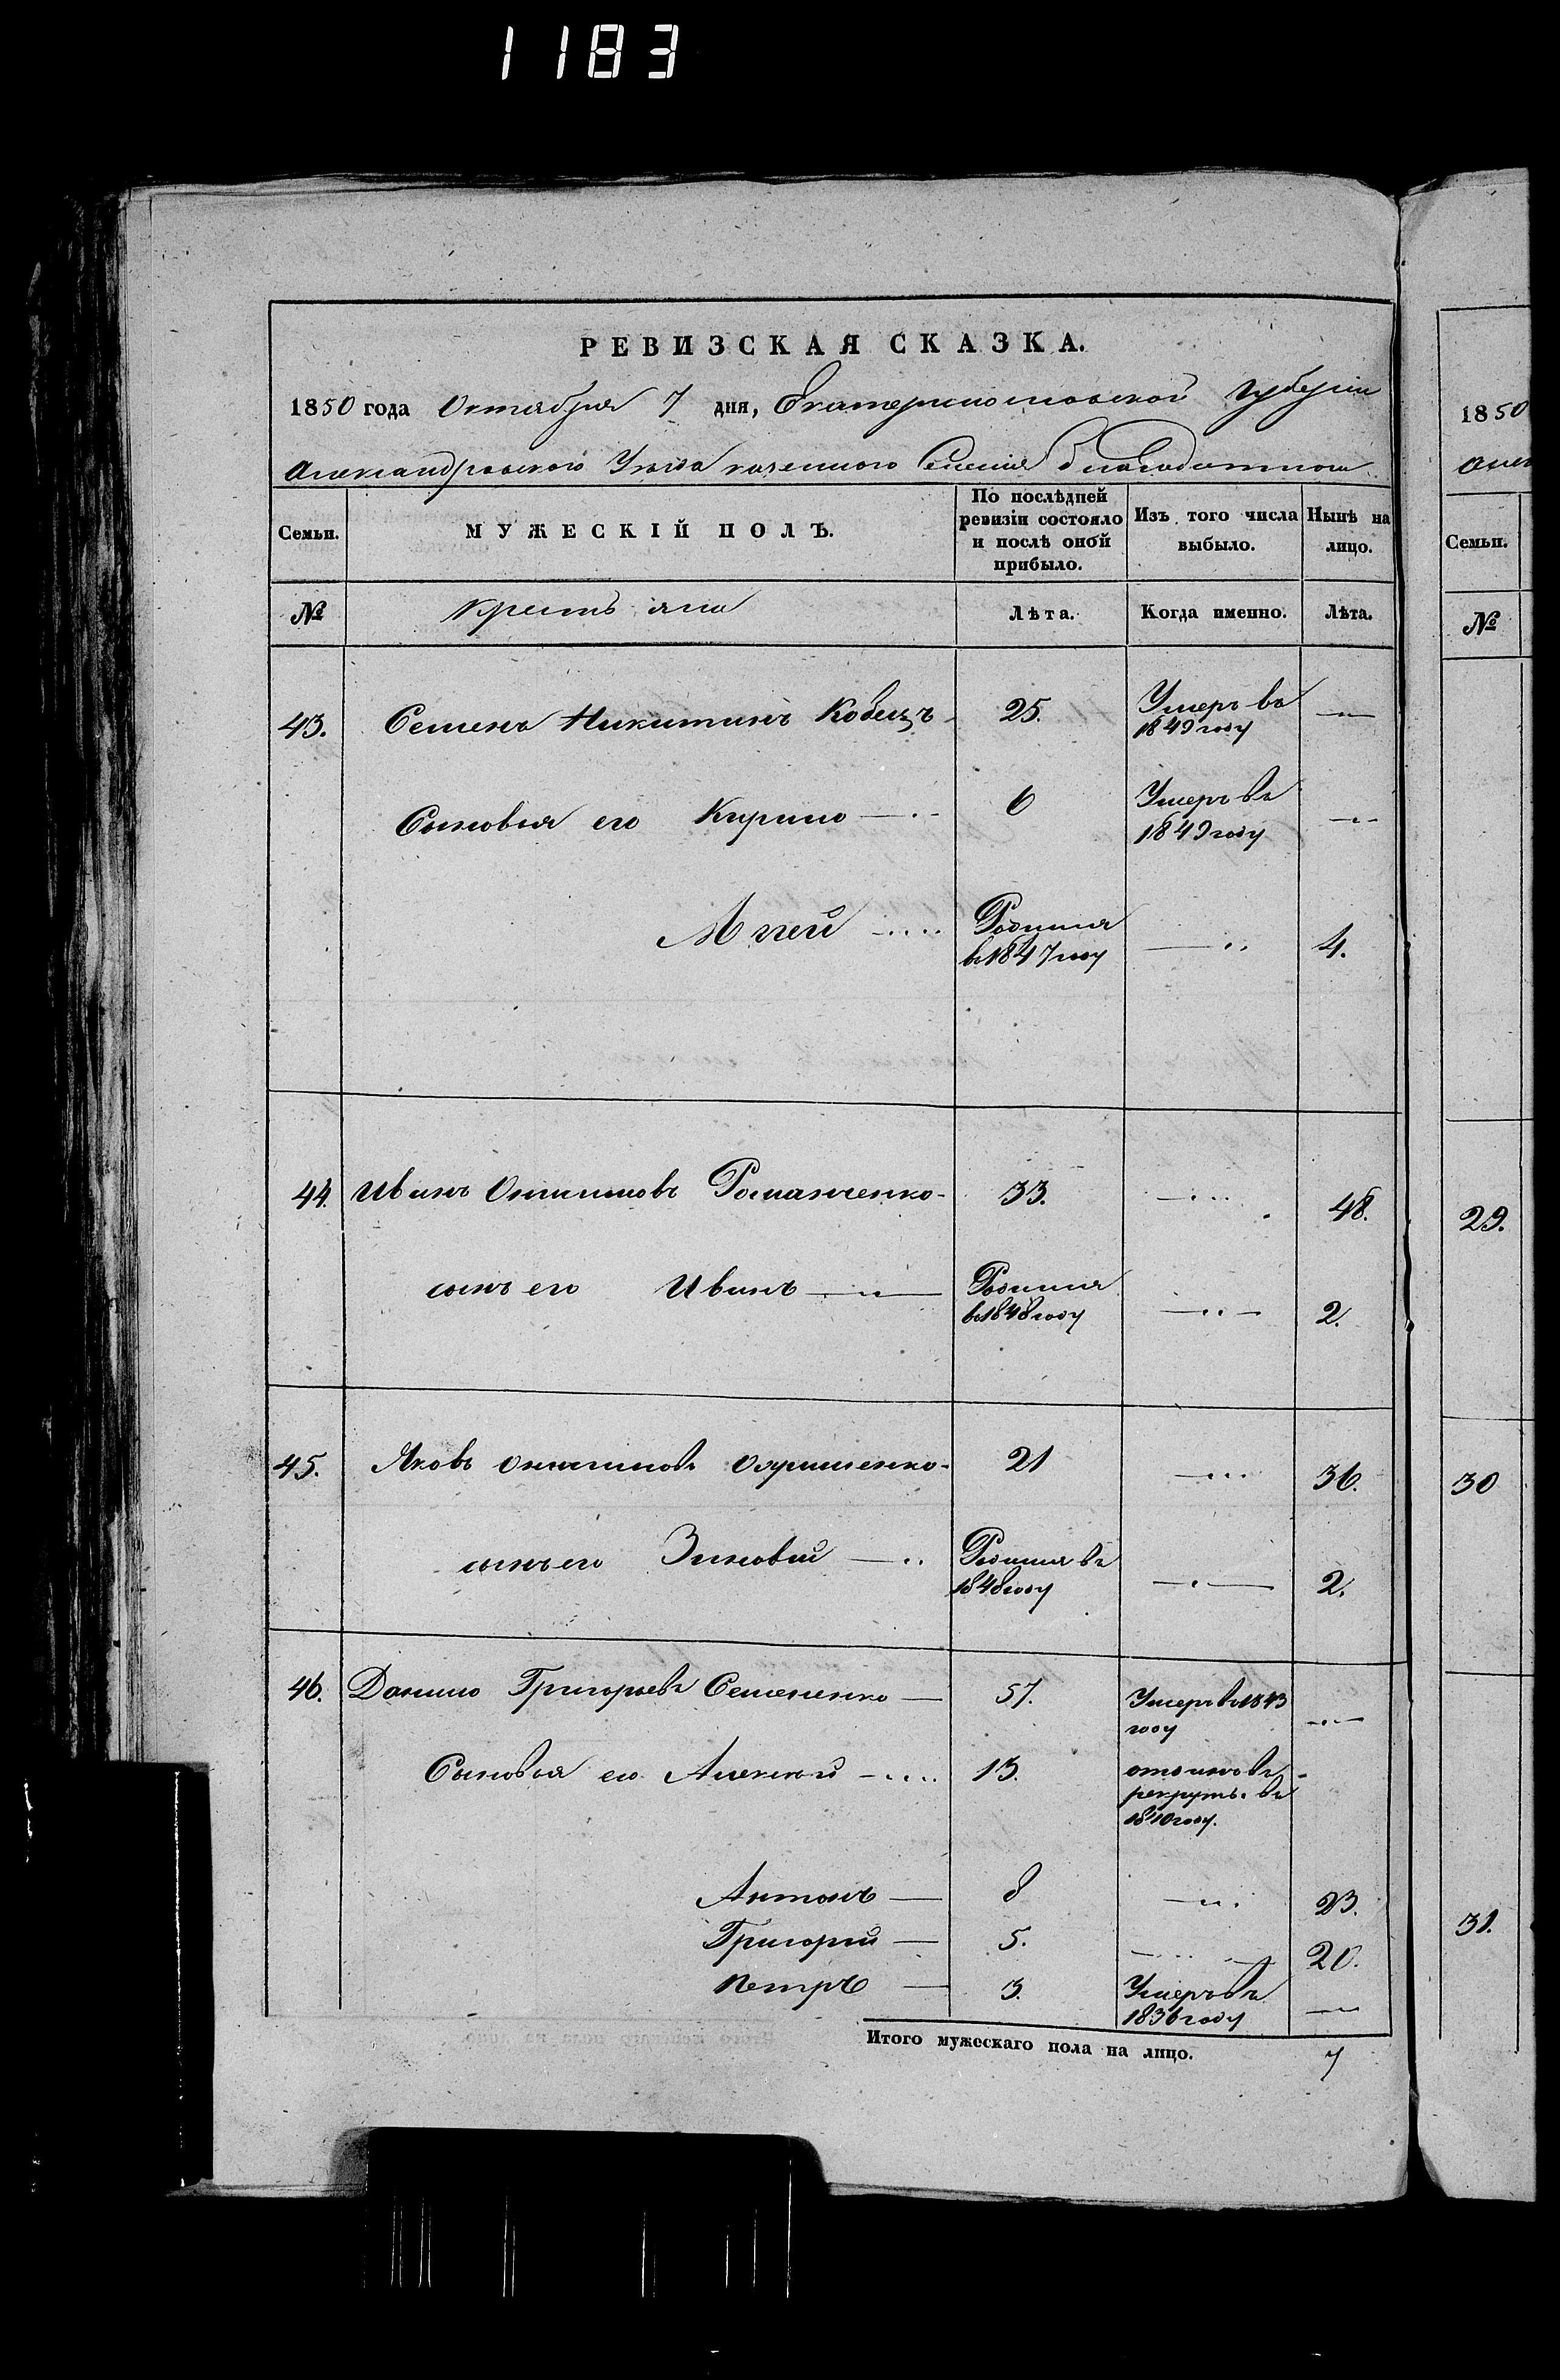 1183
РЕВИЗСКАЯ СКАЗКА.
1850 года Октября 7 дня, Екатеринославской Губернии
Александровского Уезда казенного Селения Благодатного
Семьи. МУЖЕСКІЙ ПОЛЪ. По послѣдней ревизіи состояло и послѣ оной прибыло. Изъ того числа выбыло. Нынѣ на лицо.
№ Крестьяне Лѣта. Когда именно. Лѣта.
43. Семенъ Никитинъ Кобецъ 25. Умеръ въ 1849 году —
Сыновья его Кирило — 6 Умеръ въ 1849 году —
Родился в 1847 году — 4.
44. Иванъ Романченко - 33. — 48.
сынъ его Иванъ — Родился в 1848 году — 2.
45. Яковъ - 21 — 36.
сынъ его Зиновий — Родился въ 1848 году — 2.
46. Данило Григорьевъ Семененко — 57. Умеръ в 1843 году —
Сыновья его Алексей — 13. отданъ въ рекруты въ 1840 году.
Антонъ — 8 — 23.
Григорий — 5. — 20.
Петръ — 3. Умеръ въ 1836 году —
Итого мужескаго пола на лицо. 7
1850
Семьи.
№
29.
30
31.